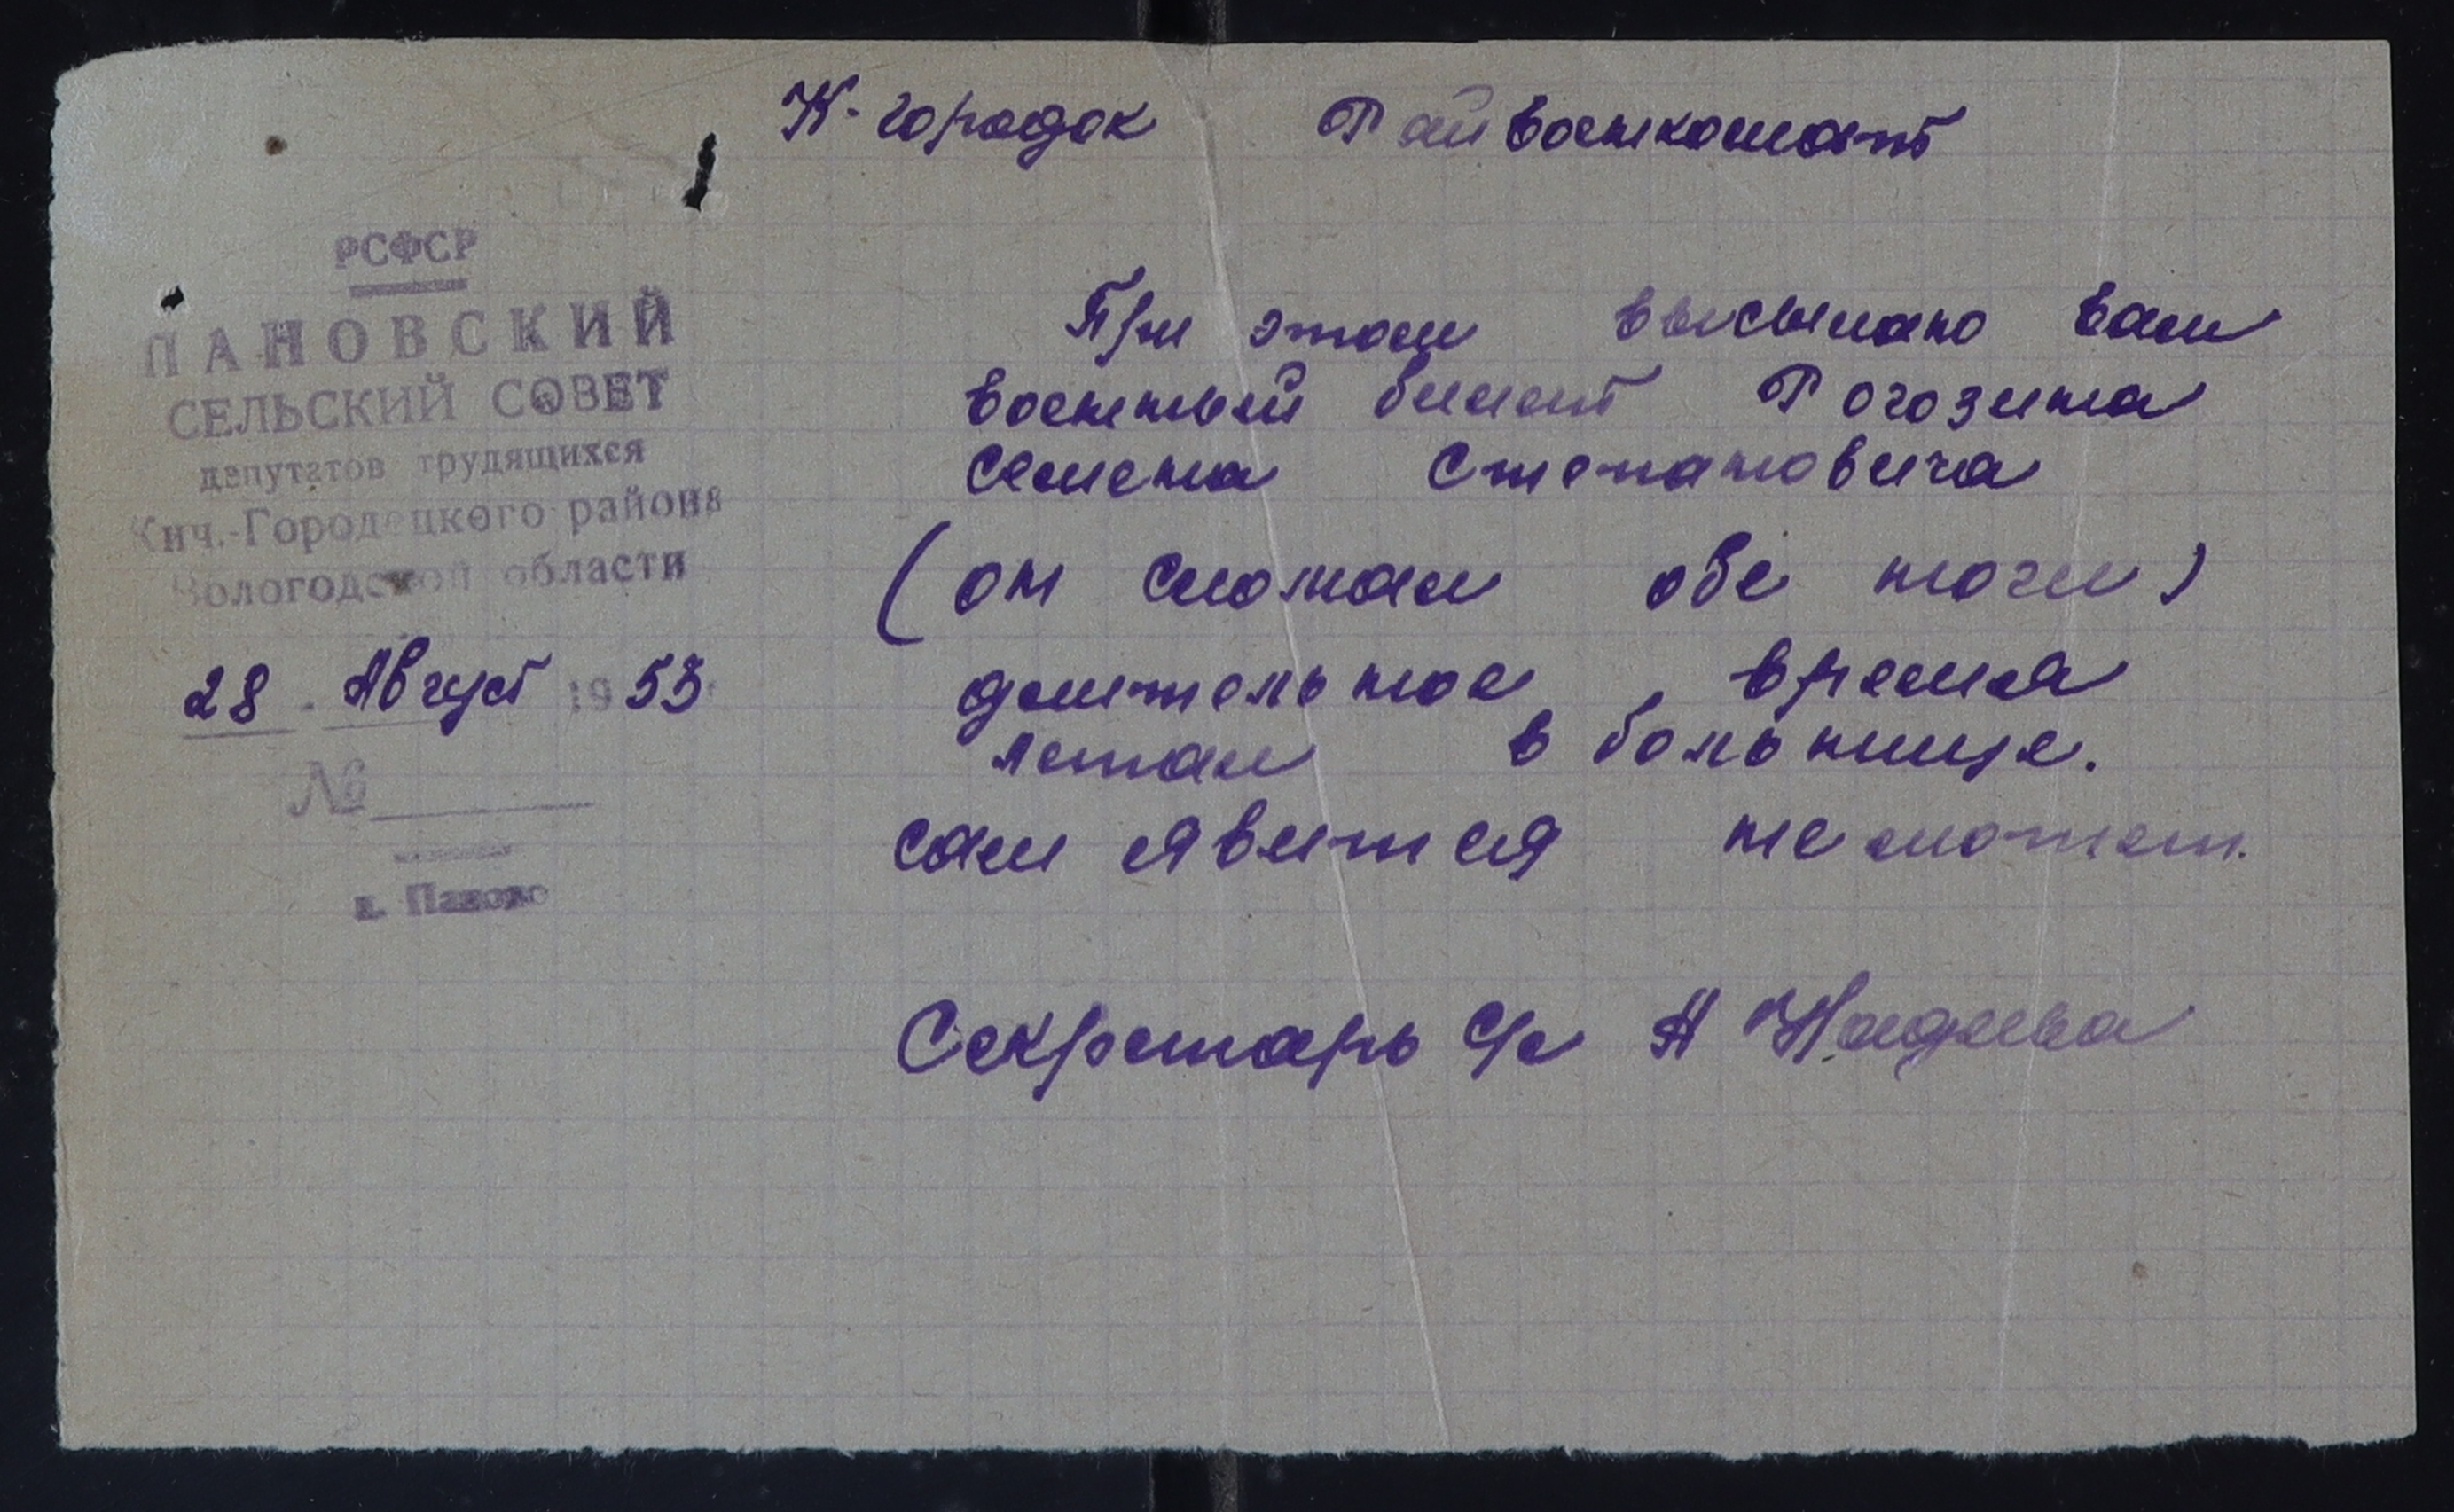 К-городок Райвоенкомат
РСФСР
ПАНОВСКИЙ
СЕЛЬСКИЙ СОВЕТ
депутатов трудящихся
Кич.-Городецкого района
Вологодской области
28 Август 1953
№
д. Паново
При этом высылаю вам
военный билет Рогозина
Семена Степановича
(он сломал обе ноги)
длительное время
лежал в больнице.
сам явится не может.
Секретарь с/с